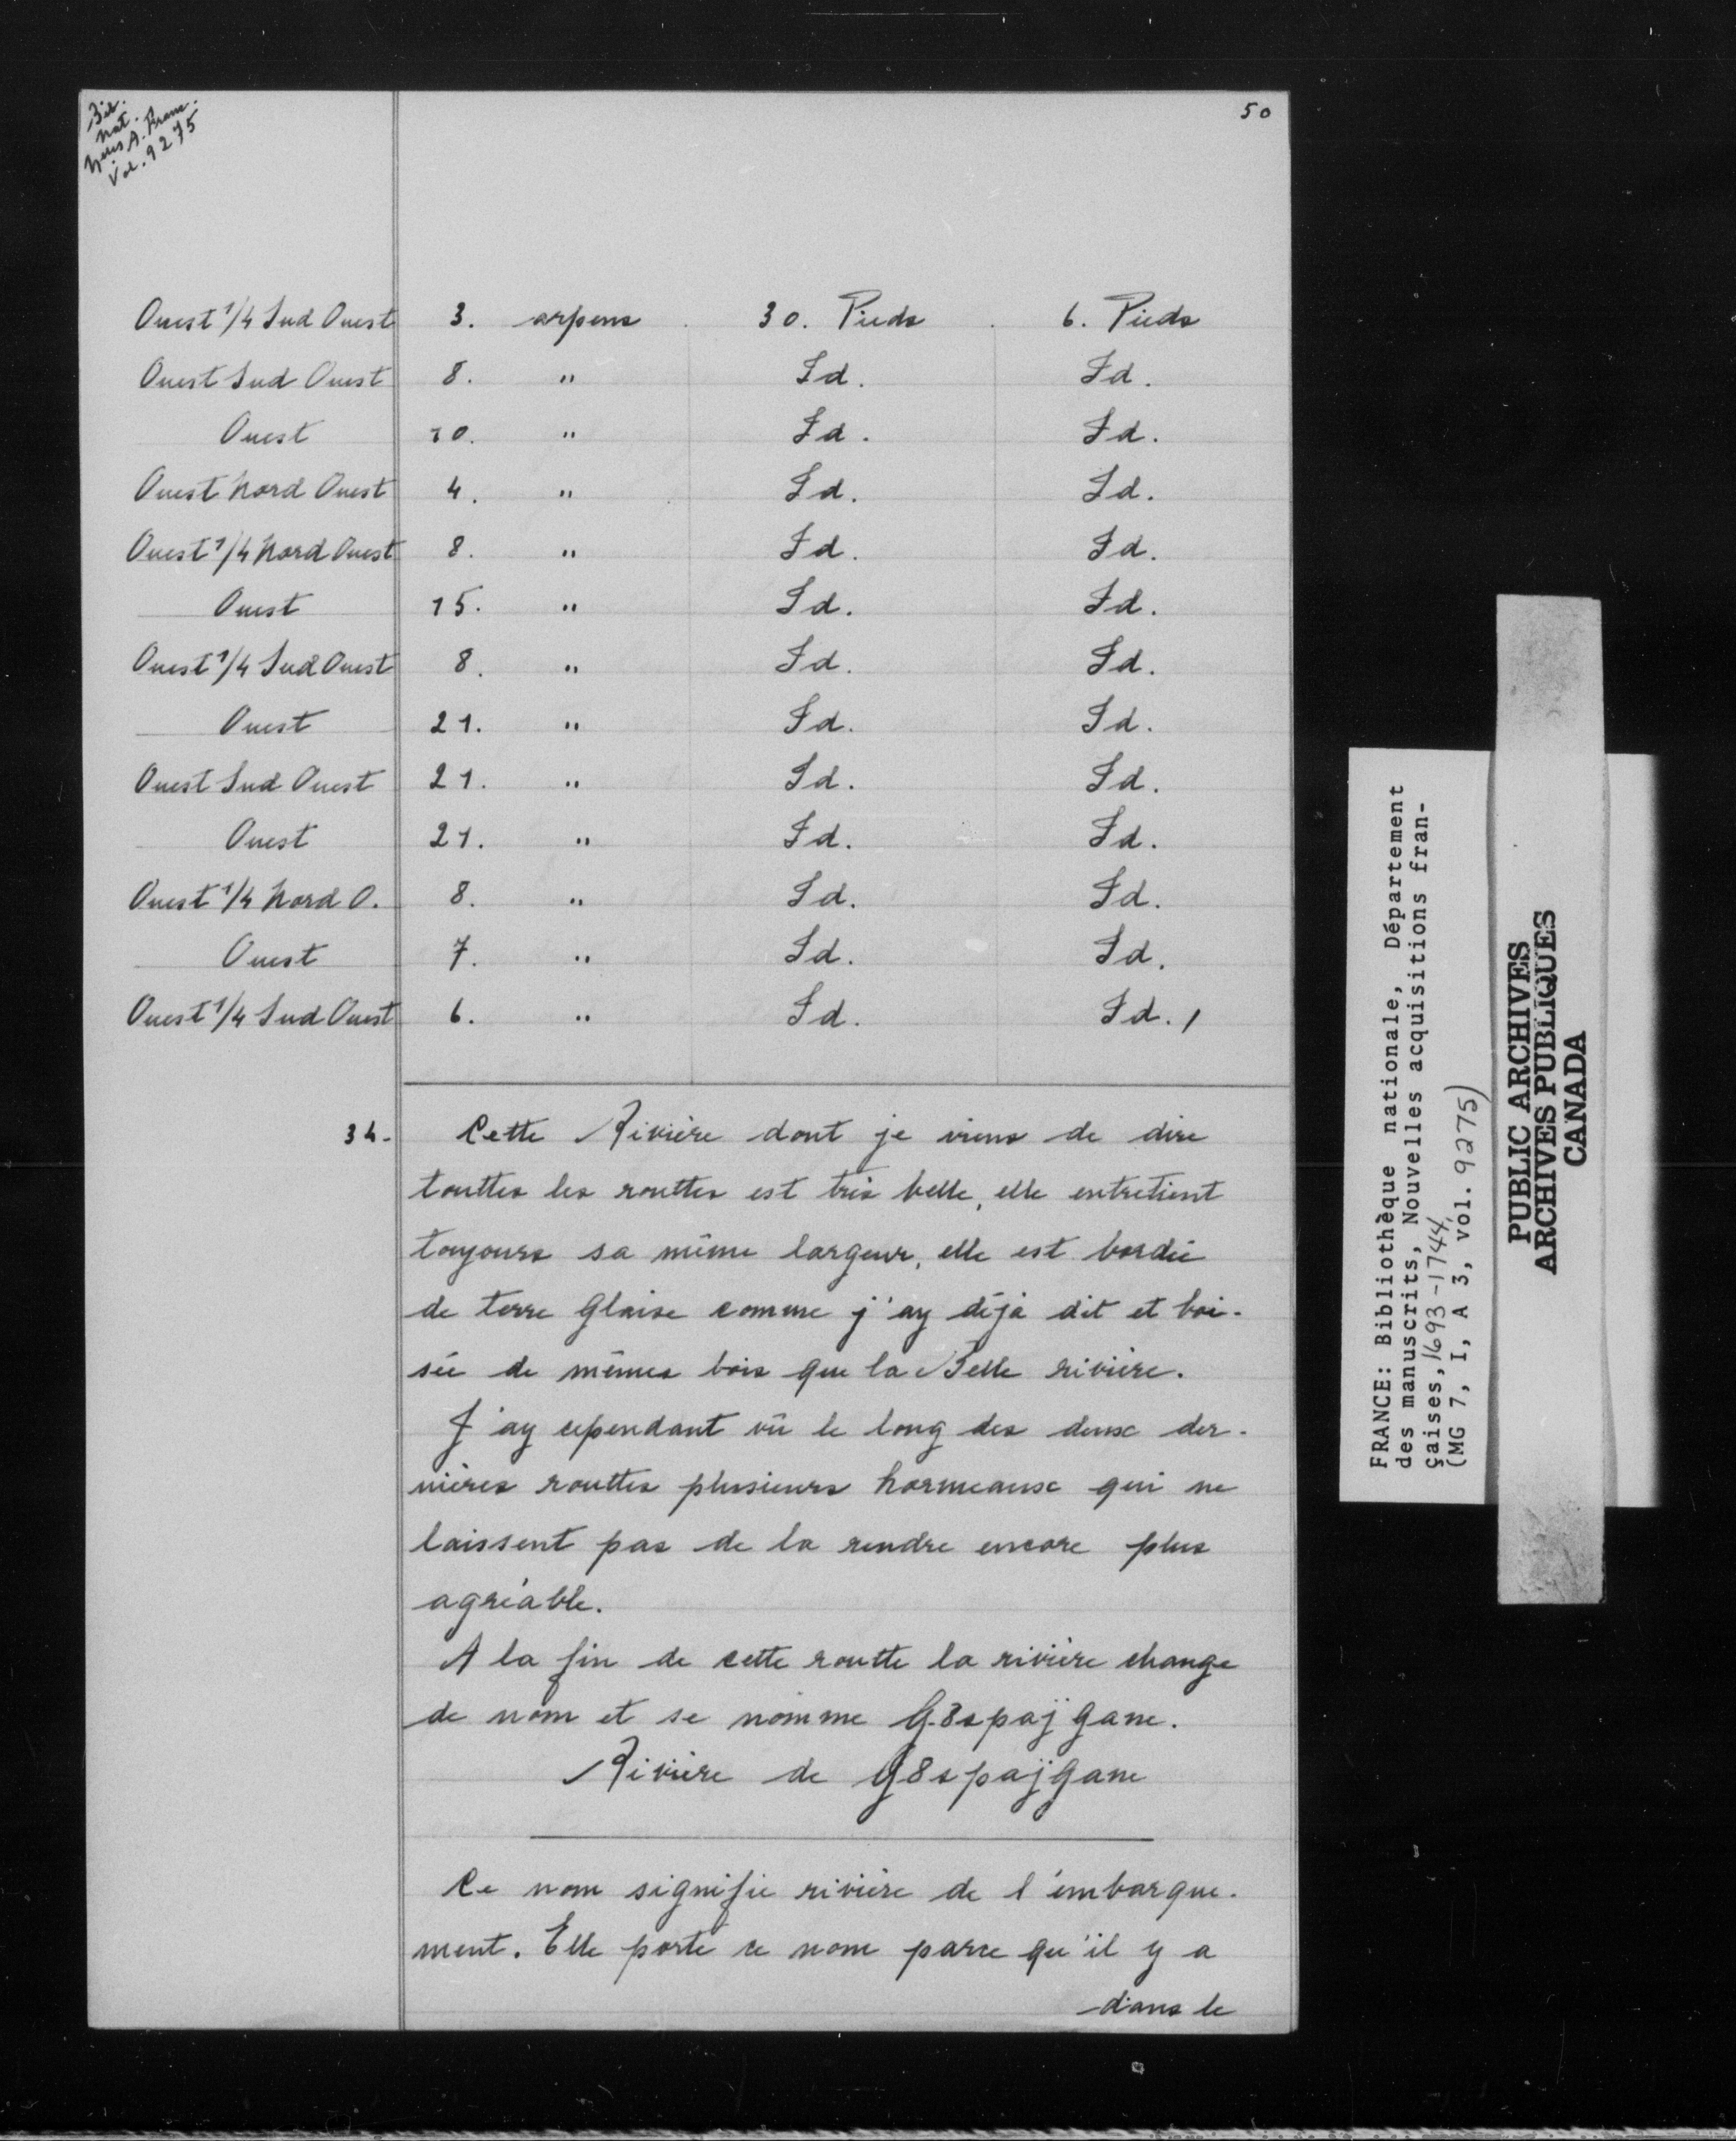 Bib.
nat.
Nelles A. Franc.
Vol. 9275
50
Ouest 1/4 Sud Ouest 3. arpens 30. Pieds 6. Pieds
Ouest Sud Ouest 8. " Id. Id.
Ouest 10. " Id. Id.
Ouest Nord Ouest 4. " Id. Id.
Ouest 1/4 Nord Ouest 8. " Id. Id.
Ouest 15. " Id. Id.
Ouest 1/4 Sud Ouest 8. " Id. Id.
Ouest 21. " Id. Id.
Ouest Sud Ouest 21. " Id. Id.
Ouest 21. " Id. Id.
Ouest 1/4 Nord O. 8. " Id. Id.
Ouest 7. " Id. Id.
Ouest 1/4 Sud Ouest 6. " Id. Id. /
34. Cette Rivière dont je viens de dire
touttes les routtes est très belle, elle entretient
toujours sa même largeur, elle est bordée
de terre glaise comme j'ay déjà dit et boi-
sée de mêmes bois que la Belle rivière.
J'ay cependant vû le long des deux der-
nières routtes plusieurs hormeaux qui ne
laissent pas de la rendre encore plus
agréable.
A la fin de cette routte la rivière change
de nom et se nomme G8spajgane.
Rivière de G8spajgane
Ce nom signifie rivière de l'embarque-
ment. Elle porte ce nom parce qu'il y a
dans le
FRANCE: Bibliothèque nationale, Département
des manuscrits, Nouvelles acquisitions fran-
çaises, 1693-1744
(MG 7, I, A 3, vol. 9275)
PUBLIC ARCHIVES
ARCHIVES PUBLIQUES
CANADA